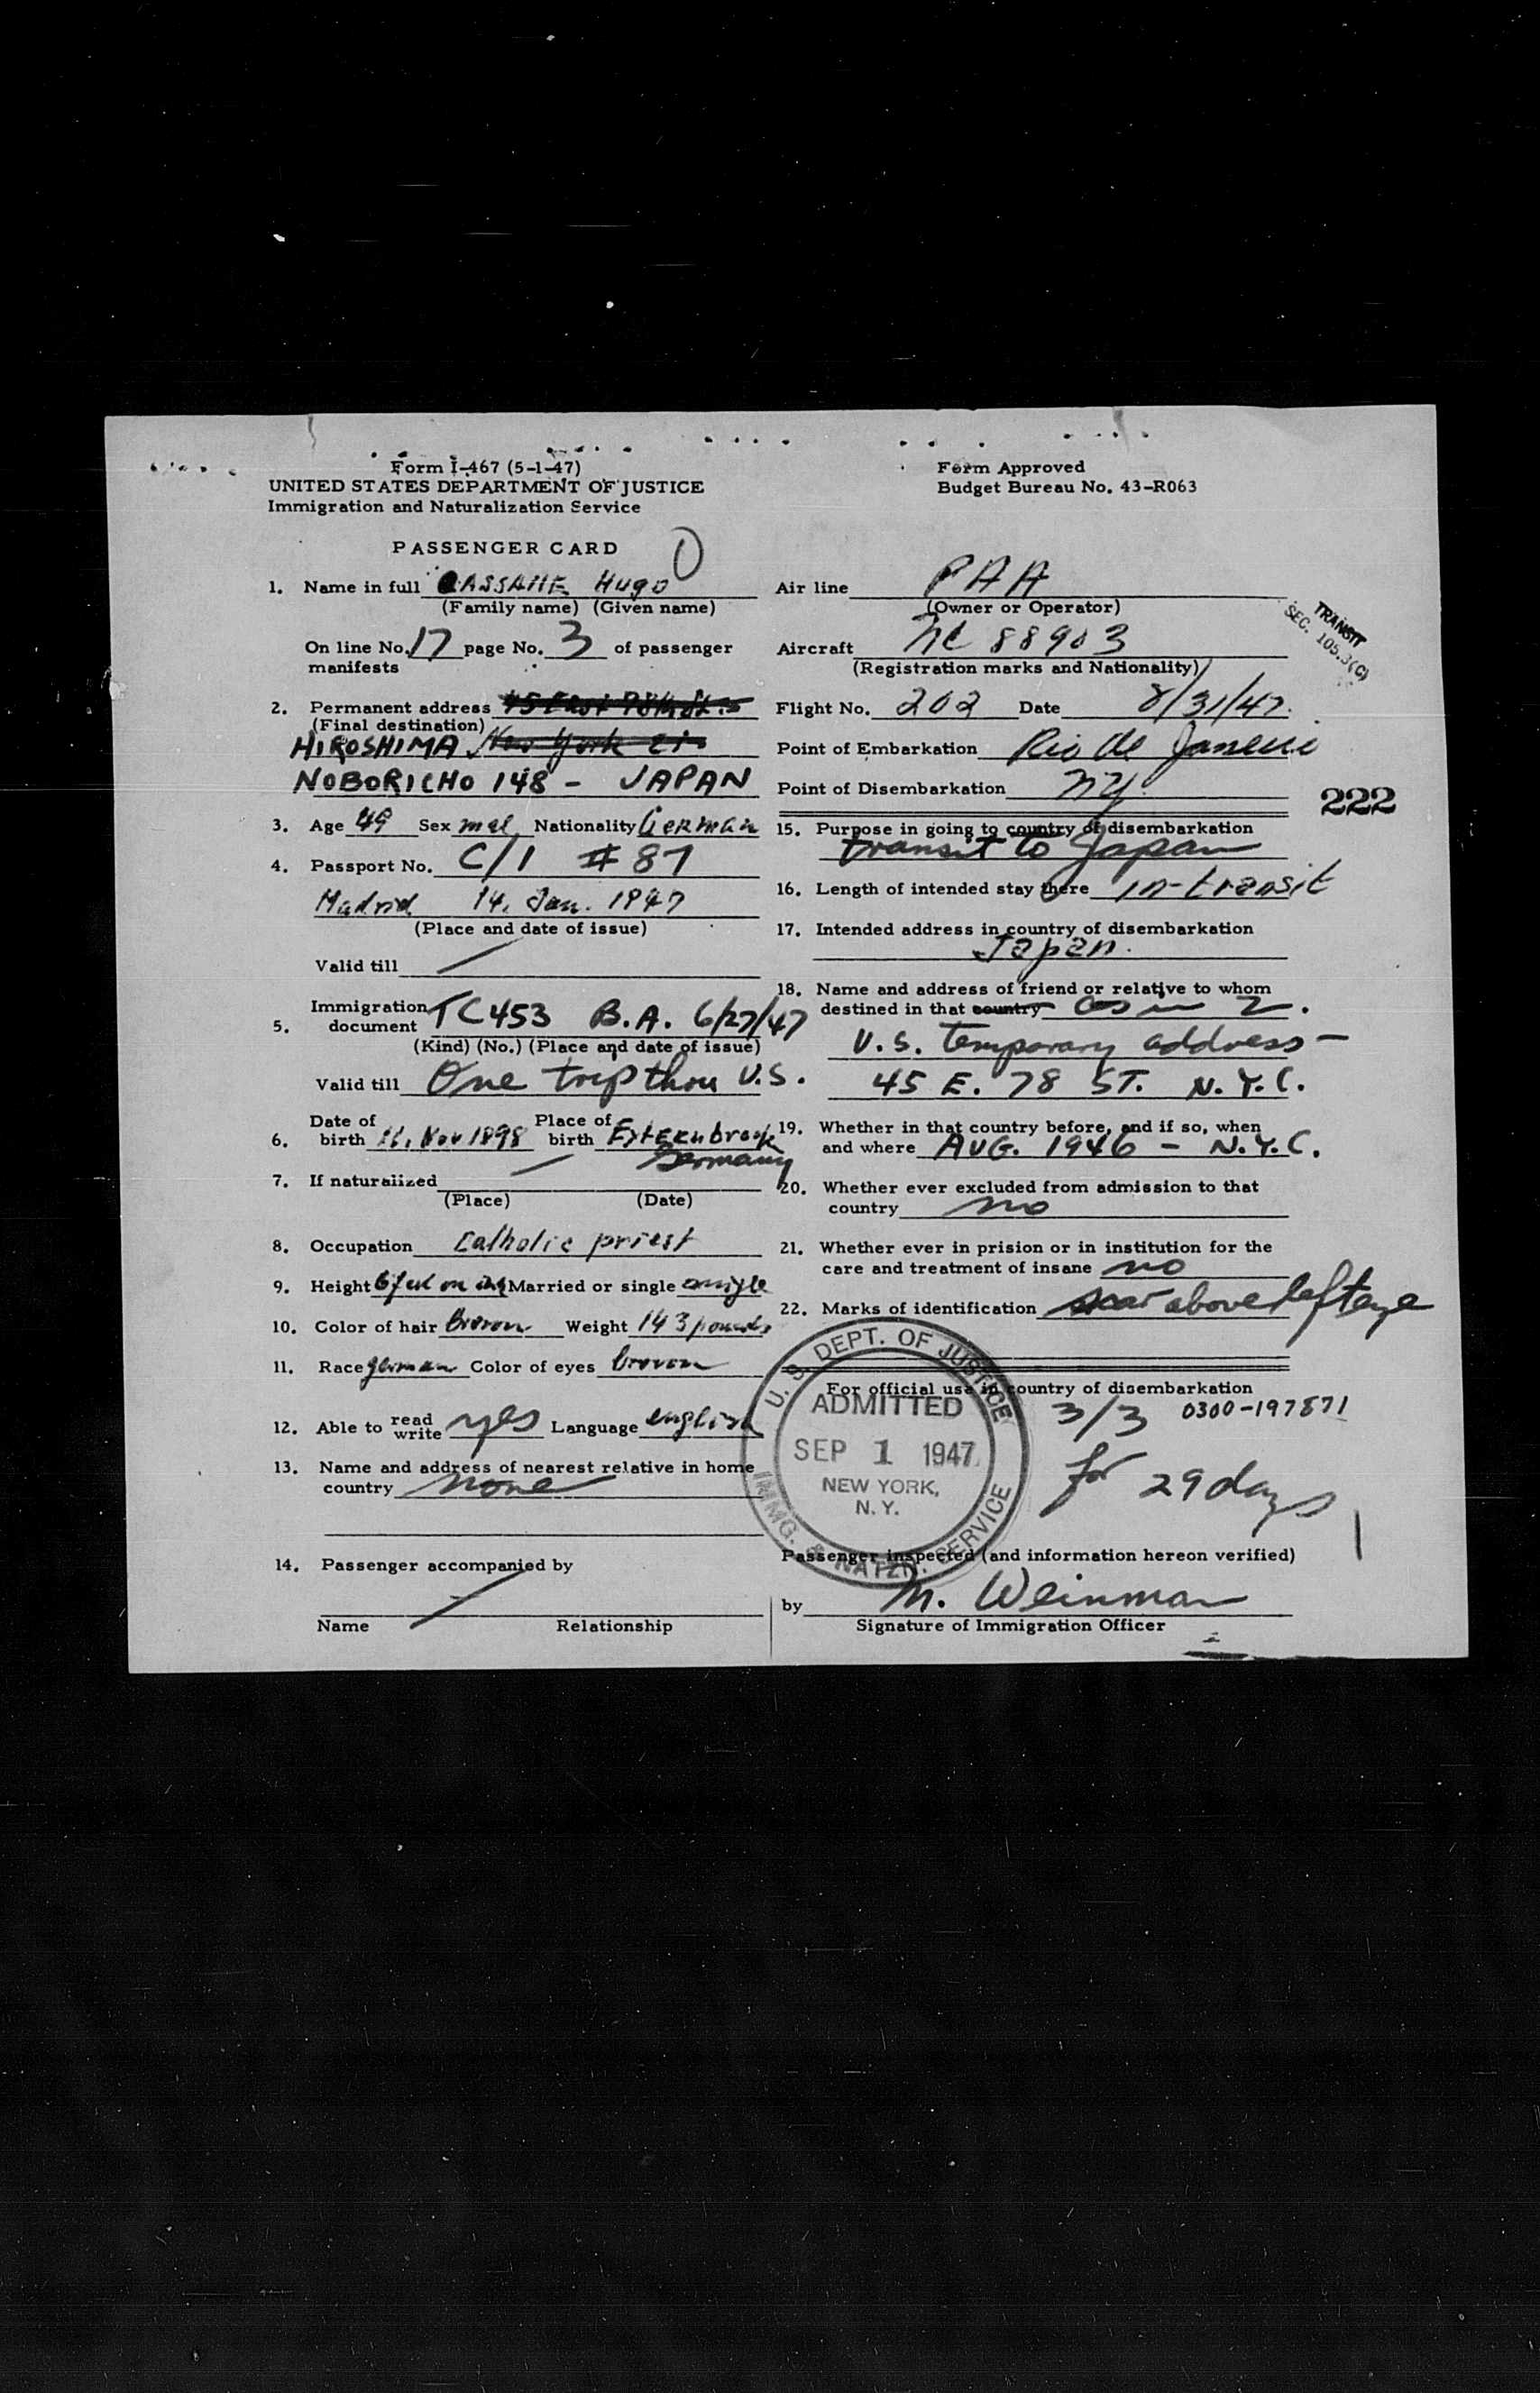 Form I-467 (5-1-47)
UNITED STATES DEPARTMENT OF JUSTICE
Immigration and Naturalization Service
Form Approved
Budget Bureau No. 43-R063
PASSENGER CARD
1. Name in full Hugo
(Family name) (Given name)
On line No. 17 page No. 3 of passenger
manifests
2. Permanent address 45 East 78th St.
(Final destination)
HIROSHIMA New York
NOBORICHO 148 - JAPAN
3. Age 49 Sex mal Nationality German
4. Passport No. C/1 # 87
Madrid 14. Jan. 1947
(Place and date of issue)
Valid till /
5. Immigration document TC453 B.A. 6/27/47
(Kind) (No.) (Place and date of issue)
Valid till One trip thru U.S.
6. Date of birth 11. Nov 1898 Place of birth
Germany
7. If naturalized
(Place) (Date)
8. Occupation Catholic priest
9. Height Married or single single
10. Color of hair Brown Weight 143 pounds
11. Race german Color of eyes brown
12. Able to read write yes Language english
13. Name and address of nearest relative in home
country none
14. Passenger accompanied by
Name Relationship
Air line PAA
(Owner or Operator)
Aircraft NC 88903
(Registration marks and Nationality)
TRANSIT
SEC. 105.3(C)
Flight No. 202 Date 8/31/47.
Point of Embarkation Rio de Janeiro
Point of Disembarkation NY.
222
15. Purpose in going to country of disembarkation
transit to Japan
16. Length of intended stay there in-transit
17. Intended address in country of disembarkation
Japan.
18. Name and address of friend or relative to whom
destined in that country as in 2.
U.S. Temporary address -
45 E. 78 ST. N.Y.C.
19. Whether in that country before, and if so, when
and where AUG. 1946 - N.Y.C.
20. Whether ever excluded from admission to that
country no
21. Whether ever in prision or in institution for the
care and treatment of insane no
22. Marks of identification scar above left eye
For official use in country of disembarkation
3/3 0300-197871
for 29 days
U. S. DEPT. OF JUSTICE
ADMITTED
SEP 1 1947
NEW YORK,
N. Y.
IMMG. & NATZN. SERVICE
Passenger inspected (and information hereon verified)
by M. Weinman
Signature of Immigration Officer